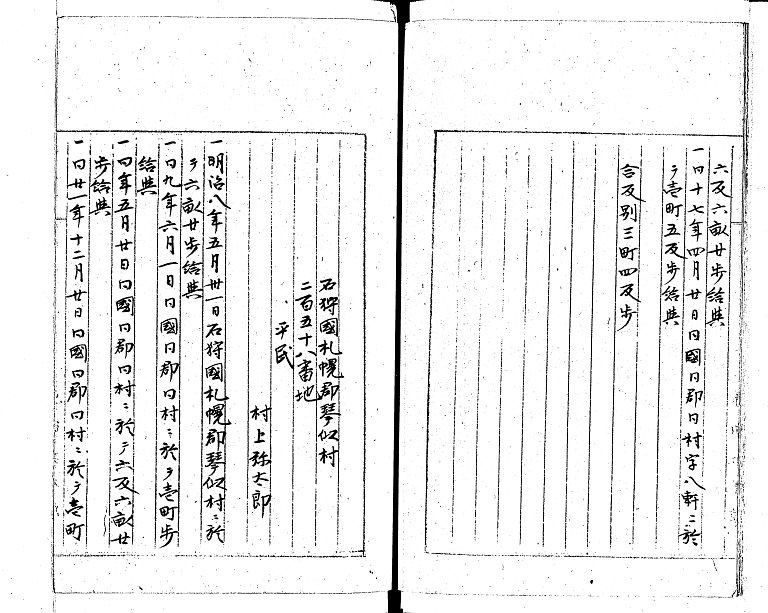 六反六畝廿歩給与
一同十七年四月廿日同國同郡同村字八軒ニ於
テ壱町五反歩給与
合反別三町四反歩
石狩國札幌郡琴似村
二百五十八番地
平民
村上弥太郎
一明治八年五月卅一日石狩國札幌郡琴似村ニ於
テ六畝廿歩給与
一同九年六月一日同國同郡同村ニ於テ壱町歩
給与
一同年五月廿日同國同郡同村ニ於テ六反六畝廿
歩給与
一同廿一年十二月廿日同國同郡同村ニ於テ壱町